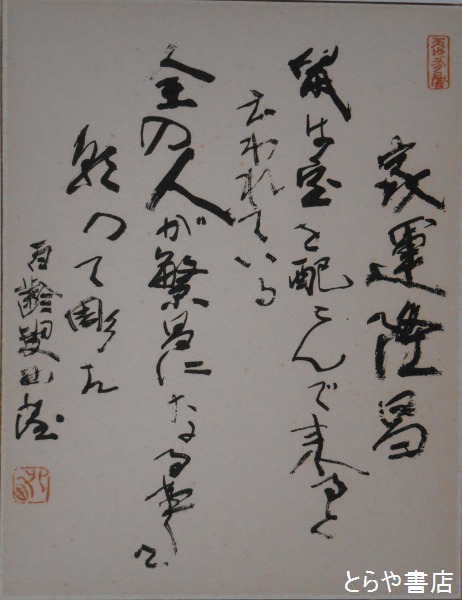 家運隆昌
鼠は宝を配こんで来ると
云われている
全の人が繁昌になる事を
願つて彫る
百齢叟
とらや書店